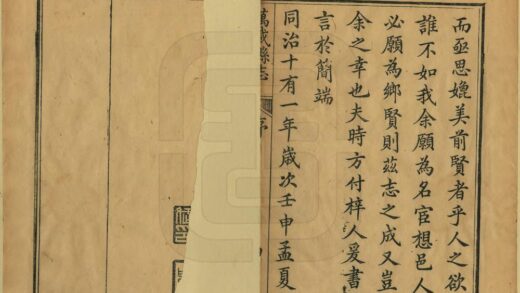 而亟思媲美前賢者乎人之欲
誰不如我余願為名宦想邑人
必願為鄉賢則茲志之成又豈
余之幸也夫時方付梓人爰書
言於簡端
同治十有一年歲次壬申孟夏
萬載縣志
序